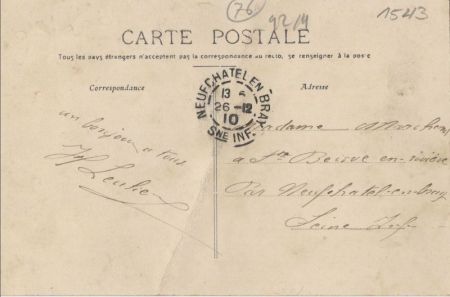 76
92/4
1543
CARTE POSTALE
Tous les pays étrangers n'acceptent pas la correspondance au recto, se renseigner à la poste
Correspondance
Adresse
NEUFCHATEL-EN-BRAY
13
26 -12
10
SNE INF.
un bonjour a tous
Madame
a Ste Beuve en rivière
Par Neufchatel-en-bray
Seine Inf